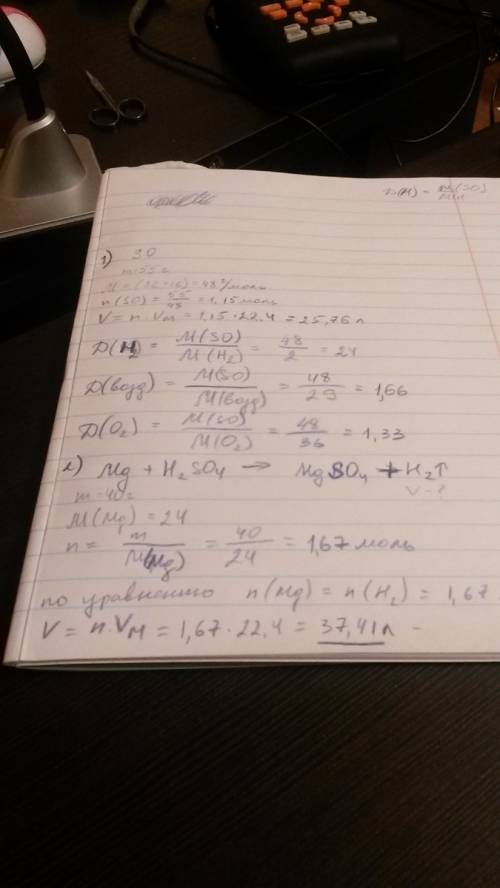 D(H) = M(SO)
1) SO
m=55 г
M = (32+16) = 48 г/моль
n(SO) = 55/48 = 1,15 моль
V = n · Vм = 1,15 · 22,4 = 25,76 л
D(H₂) = M(SO)/M(H₂) = 48/2 = 24
D(возд) = M(SO)/M(возд) = 48/29 = 1,66
D(O₂) = M(SO)/M(O₂) = 48/36 = 1,33
2) Mg + H₂SO₄ → MgSO₄ + H₂↑
m=40 г V-?
M(Mg) = 24
n = m/M(Mg) = 40/24 = 1,67 моль
по уравнению n(Mg) = n(H₂) = 1,67
V = n·Vм = 1,67·22,4 = 37,41 л